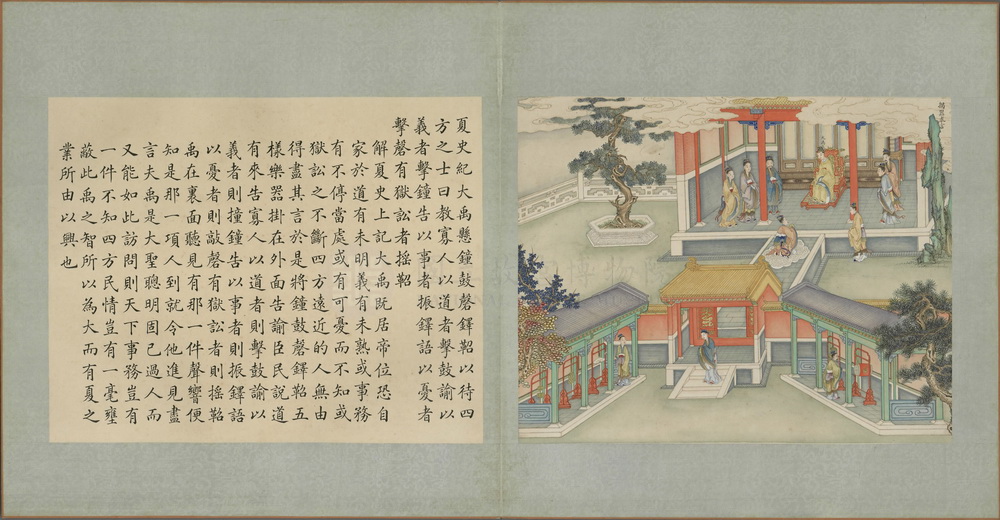 夏史紀大禹懸鐘鼓磬鐸鞀以待四
方之士曰教寡人以道者擊鼓諭以
義者擊鐘告以事者振鐸語以憂者
擊磬有獄訟者搖鞀
解夏史上記大禹既居帝位恐自
家於道有未明義有未熟或事務
有不停當處或有可憂而不知或
獄訟之不斷四方遠近的人無由
得盡其言於是將鐘鼓磬鐸鞀五
樣樂器掛在外面告諭臣民說道
有來告寡人以道者則擊鼓諭以
義者則撞鐘告以事者則振鐸語
以憂者則敲磬有獄訟者則搖鞀
禹在裏面聽見有那一件聲響便
知是那一項人到就令他進見盡
言夫禹是大聖聰明固已過人而
又能如此訪問則天下事務豈有
一件不知四方民情豈有一毫壅
蔽此禹之智所以為大而有夏之
業所由以興也